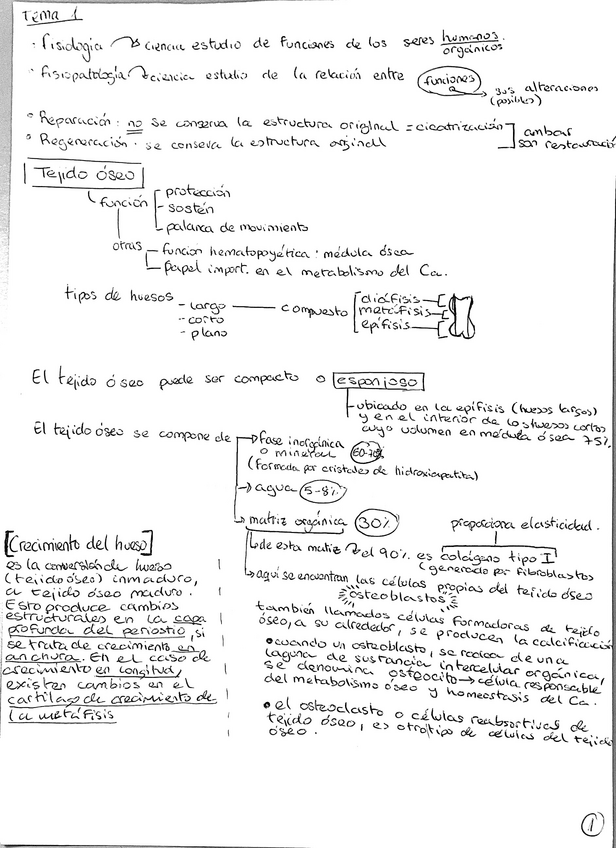 Tema 1
· Fisiología → ciencia estudio de funciones de los seres humanos.
orgánicos
· Fisiopatología → ciencia estudio de la relación entre funciones
a sus alteraciones
(posibles)
• Reparación: no se conserva la estructura original = cicatrización
• Regeneración: se conseva la estructura original
ambas
son restauració
Tejido óseo
función
protección
- sostén
palanca de movimiento
otras
función hematopoyética: médula ósea
Papel import. en el metabolismo del Ca.
tipos de huesos
- largo compuesto
- corto
- plano
diáfisis
metáfisis
epífisis
El tejido óseo puede ser compacto o esponjoso
ubicado en la epífisis (huesos largos)
y en el interior de los huesos cortos
cuyo volumen en médula ósea 75%
El tejido óseo se compone de
Fase inorgánica
o mineral 60-70%
(formada por cristales de hidroxiapatita)
→ agua 5-8%
→ matriz orgánica 30%
proporciona elasticidad.
de esta matiz el 90% es colágeno tipo I
(generado por fibroblastos)
aquí se encuentran las células propias del tejido óseo
osteoblastos
también llamados células formadoras de tejido
óseo, a su alrededor, se producen la calcificación
• cuando un osteoblasto, se rodea de una
laguna de sustancia intercelular orgánica,
se denomina osteocito → célula responsable
del metabolismo óseo y homeostasis del Ca.
• el osteoclasto o células reabsortivas de
tejido óseo, es otro tipo de células del tejido
óseo.
[Crecimiento del hueso]
es la conversión de hueso
(tejido óseo) inmaduro,
a tejido óseo maduro.
Esto produce cambios
estructurales en la capa
profunda del periostio, si
se trata de crecimiento en
anchura. En el caso de
crecimiento en longitud,
existen cambios en el
cartílago de crecimiento de
la metáfisis
1